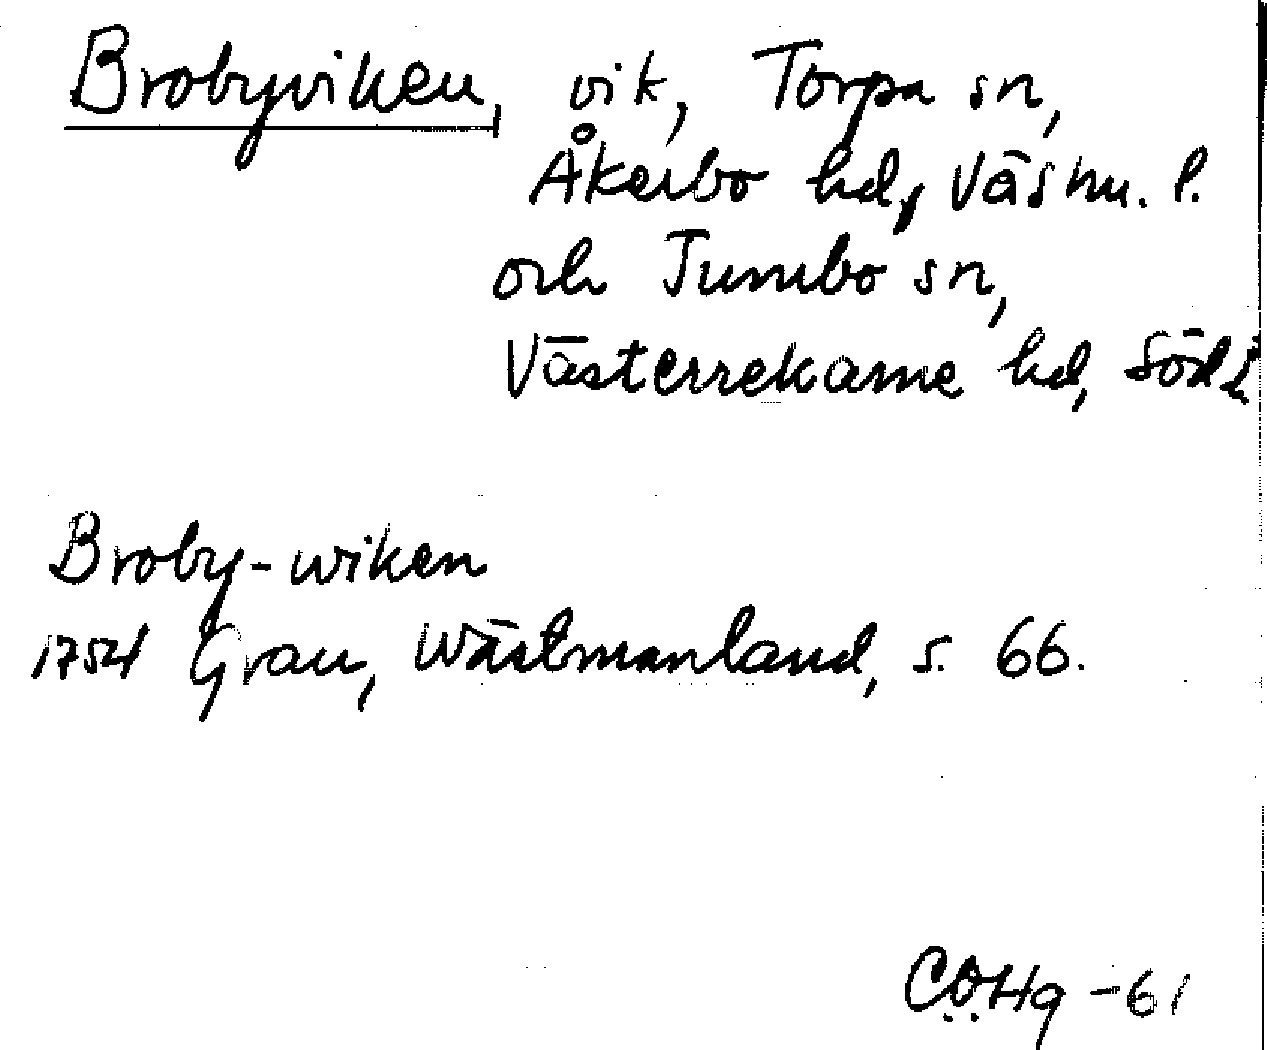 Brobyviken, vik, Torpa sn,
Åkerbo hd, Västm. l.
och Jumbo sn,
Västerrekarne hd, Söd. l.
Broby-wiken
1754 Grau, Wästmanland, s. 66.
CÖHg -61